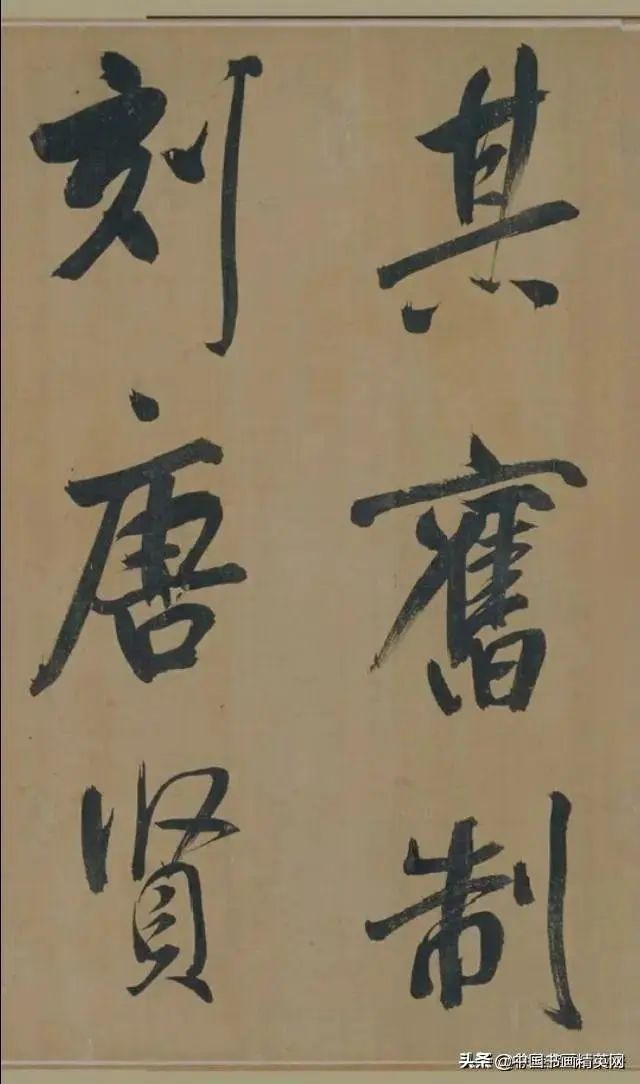 其舊制
刻唐贤
头条 @中国书画精英网